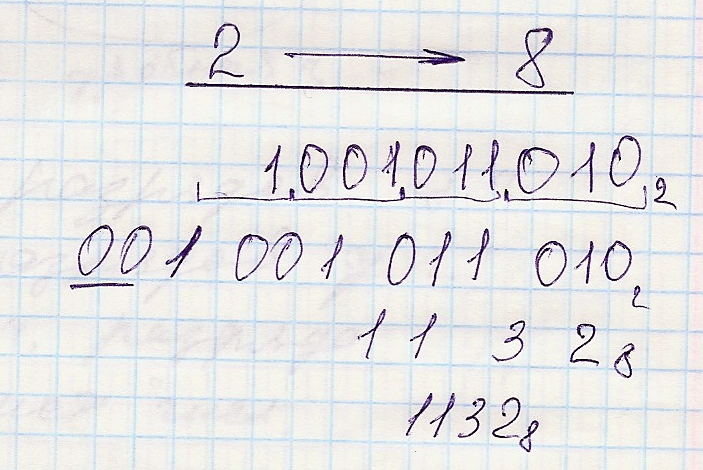 2 → 8
1.001.011.010₂
001 001 011 010₂
1 1 3 2₈
1132₈